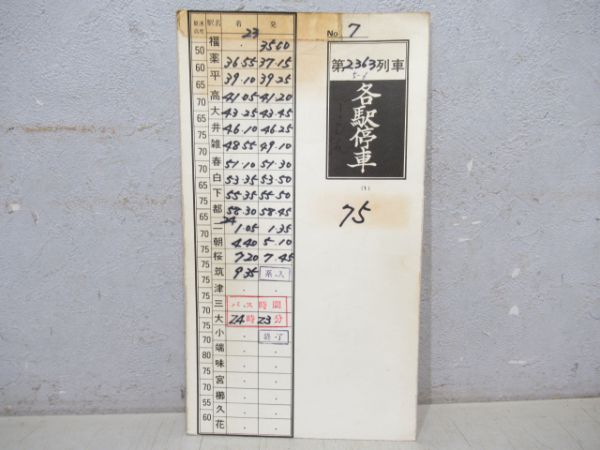 No 7
第2363列車
5-6
各駅停車
(1)
75
駅名 着 発
23
福 · 35 00
50
薬 36 55 37 15
60
平 39 10 39 25
65
高 41 05 41 20
70
大 43 25 43 45
65
井 46 10 46 25
70
雑 48 55 49 10
70
春 51 10 51 30
70
白 53 35 53 50
65
下 55 35 55 50
70
都 58 30 58 45
65
24
二 1 05 1 35
70
朝 4 40 5 10
75
桜 7 20 7 45
70
筑 9 35 系入
75
津 · ·
75
三 バス時間
75
大 24時23分
75
小 · 終了
70
端 · ·
80
味 · ·
75
宮 · ·
70
櫛 · ·
55
久 · ·
60
花 · ·